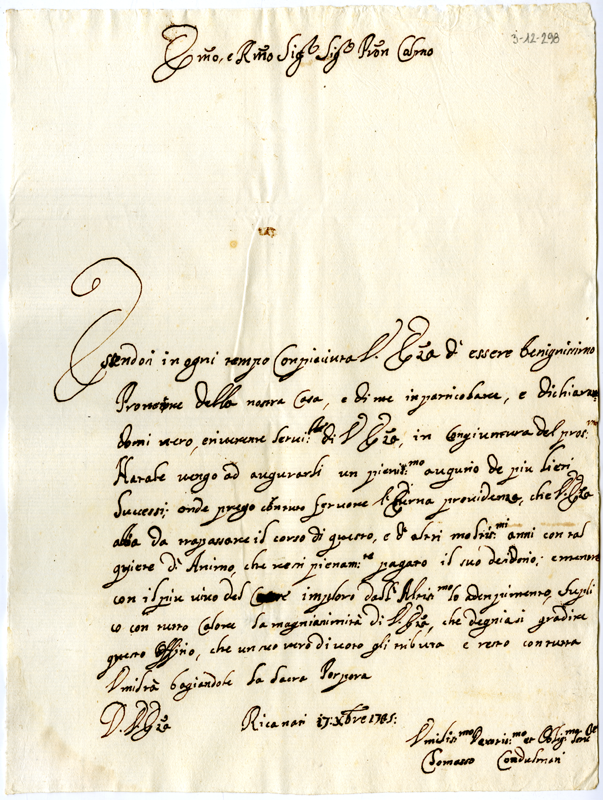 3-12-298
Emo, e Rmo Sigre Sigre Pron Colmo
Essendosi in ogni tempo Conpiaciuta V. Eza di essere benignissimo
Protettore della nostra Casa, e di me in particolare, e dichiaran
domi vero, e riverente Servi:re di V Eza, in Congiuntura del pros:mo
Natale vengo ad augurarli un pieniss:mo augurio de piu lieti
Successi; onde prego con tutto fervore l'Eterna providenza, che V. Eza
abbia da trapassare il corso di questo, e di altri moltiss:mi anni con tal
quiete di Animo, che resti pienam:te pagato il suo desiderio; e mentre
con il piu vivo del Core imploro dall'Altis:mo lo adempimento, Supli
co con tutto Calore la magnianimità di V. Eza, che degniasi gradire
questo Offitio, che un suo vero divoto gli tributa e resto con tutta
Umiltà bagiandole la Sacra Porpora
D. V. Eza Ricanati 17: Xbre 1785:
Umilis:mo Devotis:mo et Oblig:mo Serv:re
Tomasso Condulmari